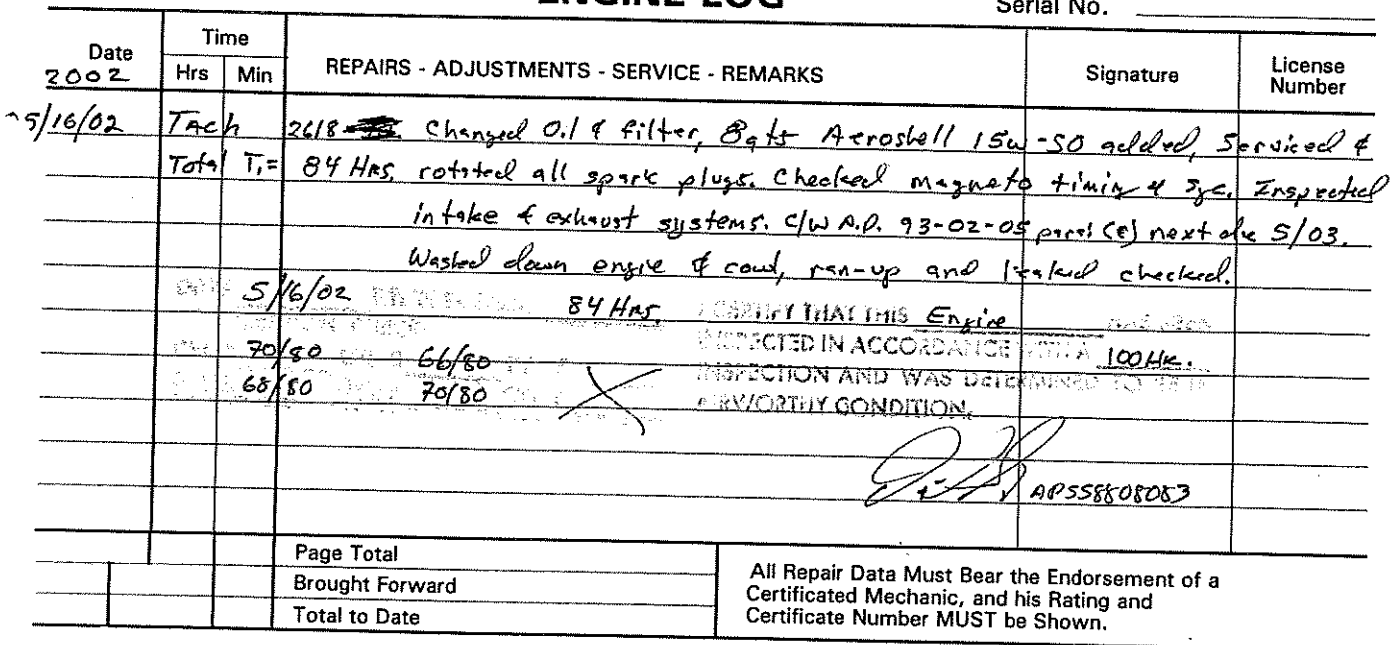 ENGINE LOG
Serial No.
Date
2002
Time
Hrs Min
REPAIRS - ADJUSTMENTS - SERVICE - REMARKS
Signature
License
Number
5/16/02 Tach 2618 Changed Oil & filter, 8qts Aeroshell 15w-50 added, Serviced &
Total T.= 84 Hrs. rotated all spark plugs. Checked magneto timing & sys. Inspected
intake & exhaust systems. C/W A.D. 93-02-05 para (e) next due 5/03.
Washed down engine & cowl, ran-up and leaked checked.
5/16/02 84 Hrs. I CERTIFY THAT THIS Engine
INSPECTED IN ACCORDANCE WITH A 100 Hr.
70/80 66/80
INSPECTION AND WAS DETERMINED TO BE IN
68/80 70/80 X
AIRWORTHY CONDITION.
Page Total
Brought Forward
Total to Date
All Repair Data Must Bear the Endorsement of a
Certificated Mechanic, and his Rating and
Certificate Number MUST be Shown.